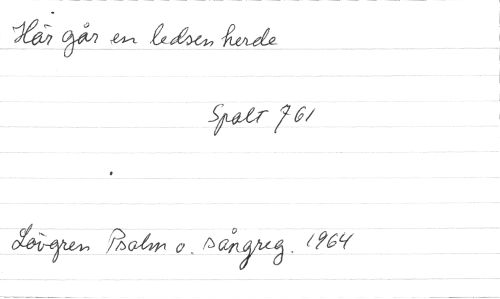 Här går en ledsen herde
Spalt 761
Lövgren Psalm o. sångreg. 1964